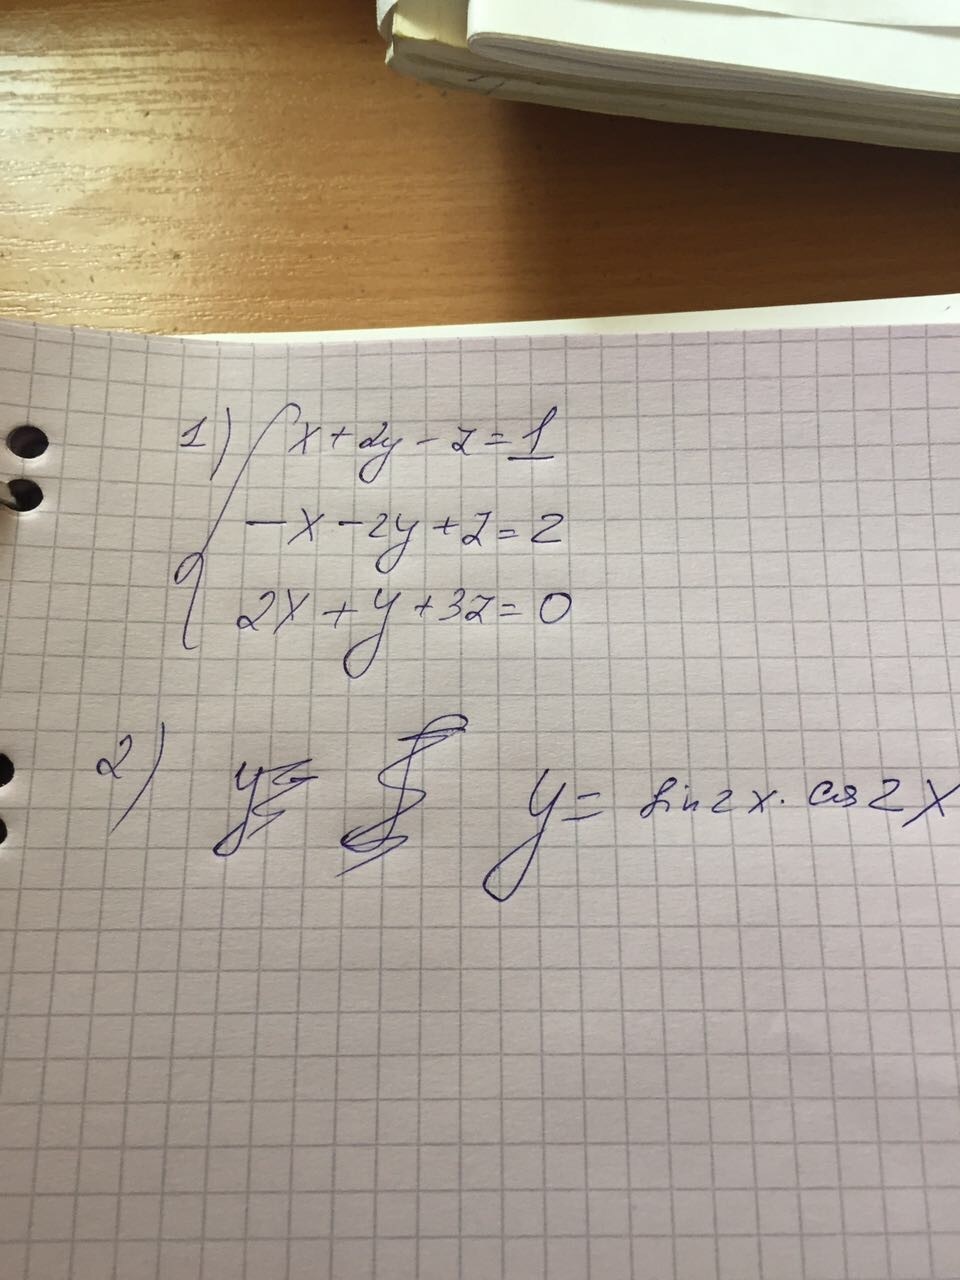 1) { x + 2y - z = 1
-x - 2y + z = 2
2x + y + 3z = 0
2) y = sin 2x · cos 2x